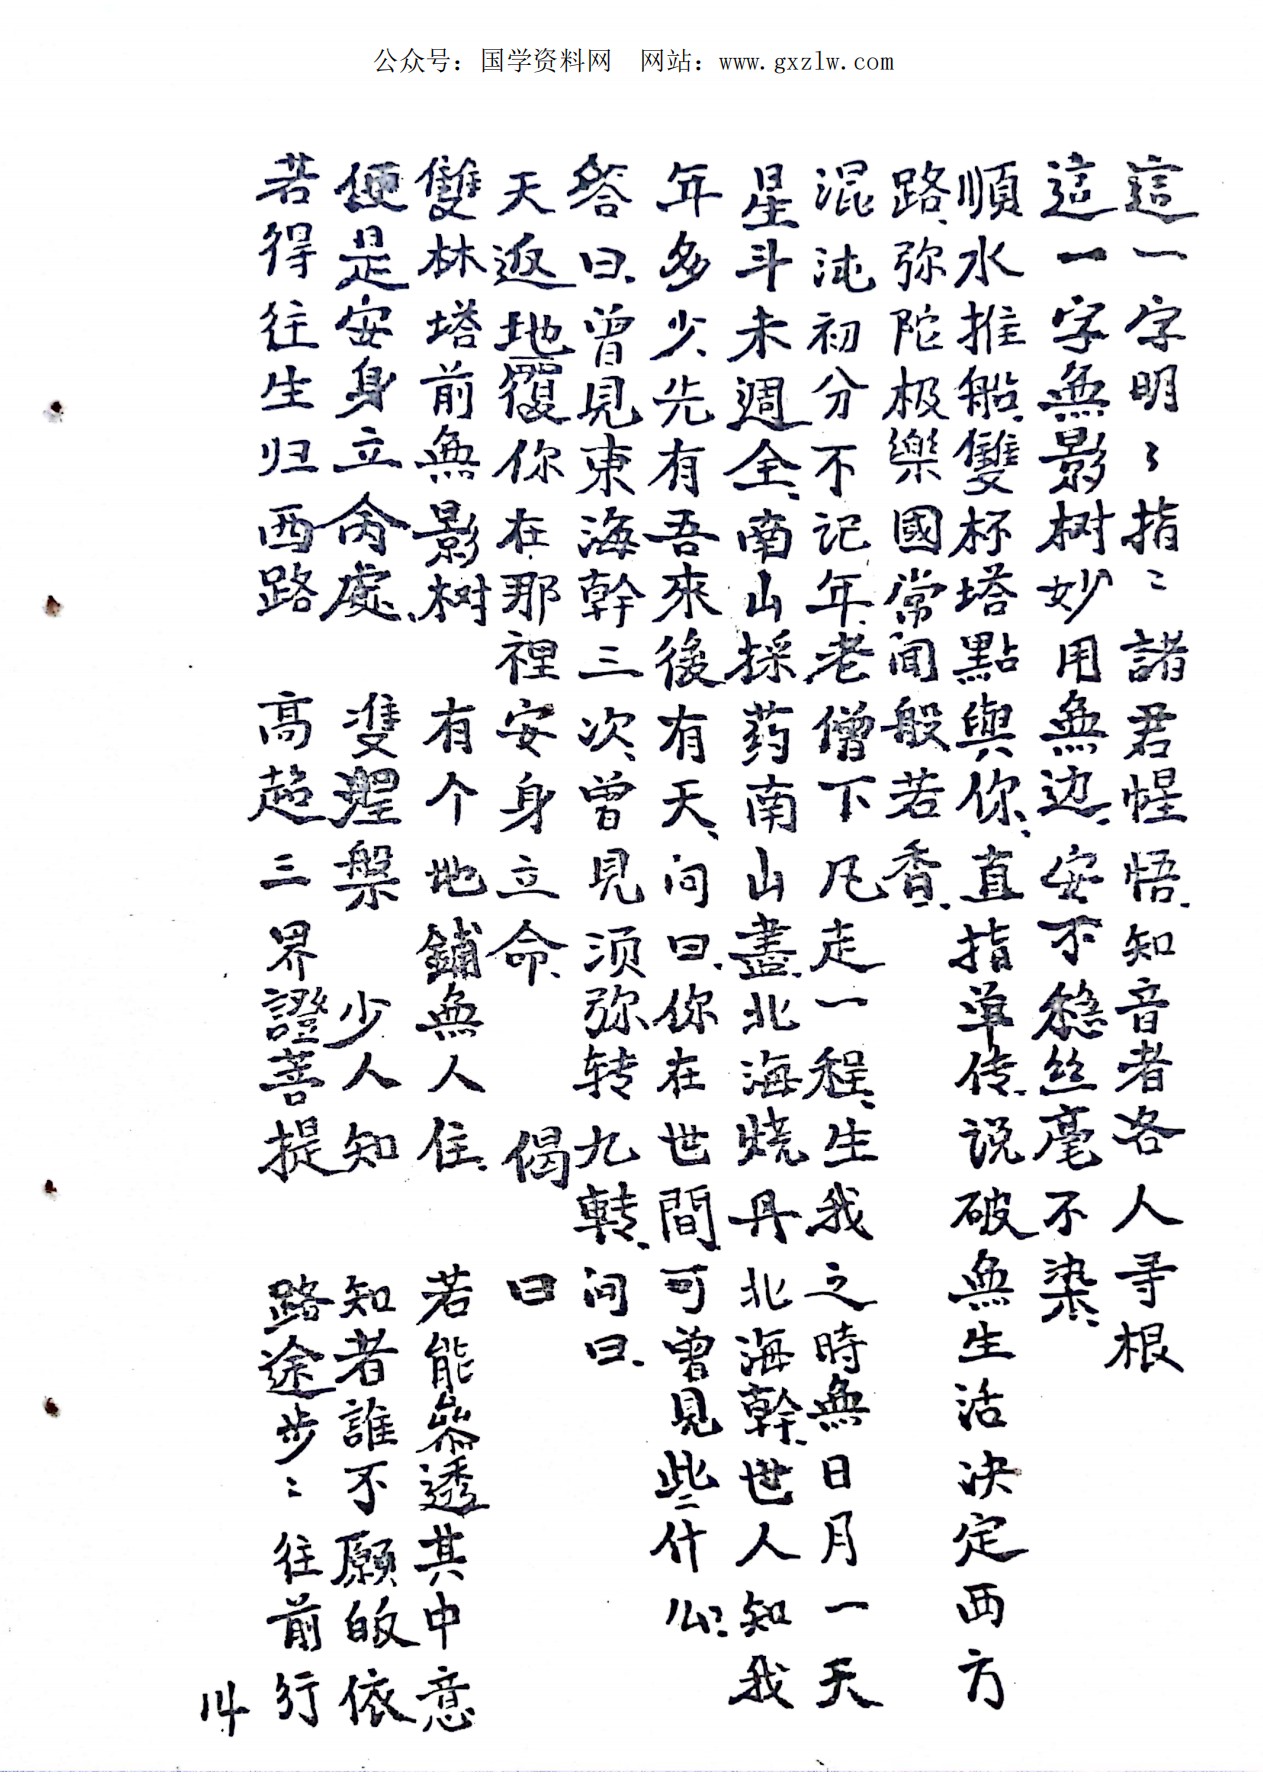 公众号：国学资料网 网站：www.gxzlw.com
這一字明〻指〻諸君惺悟、知音者各人寻根
這一字無影树妙用無边、安不稳丝毫不染、
順水推船、雙杯塔點與你、直指单传、说破無生活决定西方
路、弥陀极樂國常闻般若香、
混沌初分不记年、老僧下凡走一程、生我之時無日月一天
星斗未週全、南山採药南山盡、北海烧丹北海幹、世人知我
年多少、先有吾來後有天、问曰、你在世間可曾見些什么、
答曰、曾見東海幹三次、曾見须弥转九轉、问曰、
天返地覆你在那裡安身立命、 偈曰
雙林塔前無影树、 有个地鋪無人住、 若能參透其中意
便是安身立命處、 雙涅槃 少人知 知者誰不願皈依
若得往生归西路 高超三界證菩提 路途步〻往前行
14